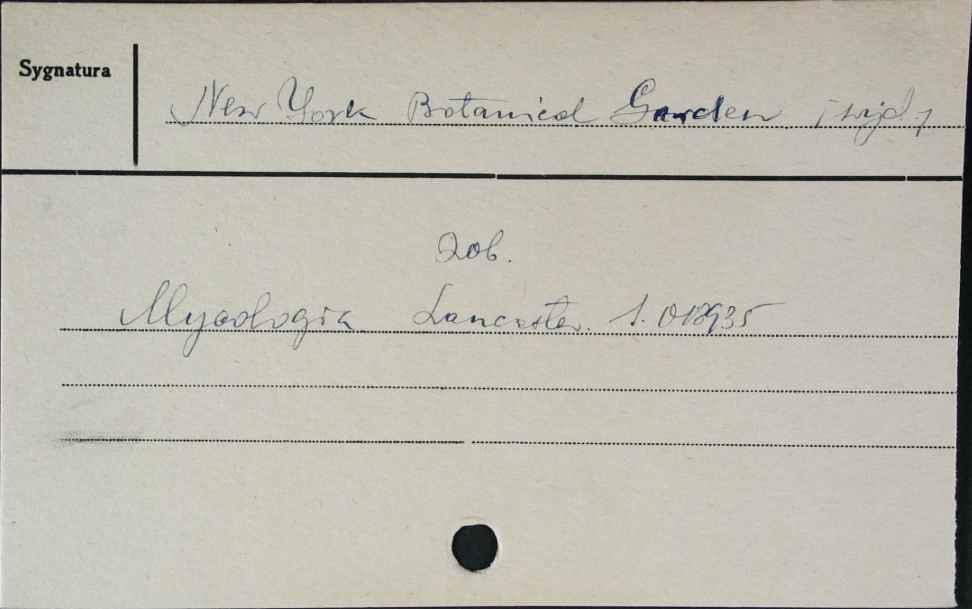 Sygnatura
New York Botanical Garden [wyd.]
Zob.
Mycologia Lancaster. S. 013935